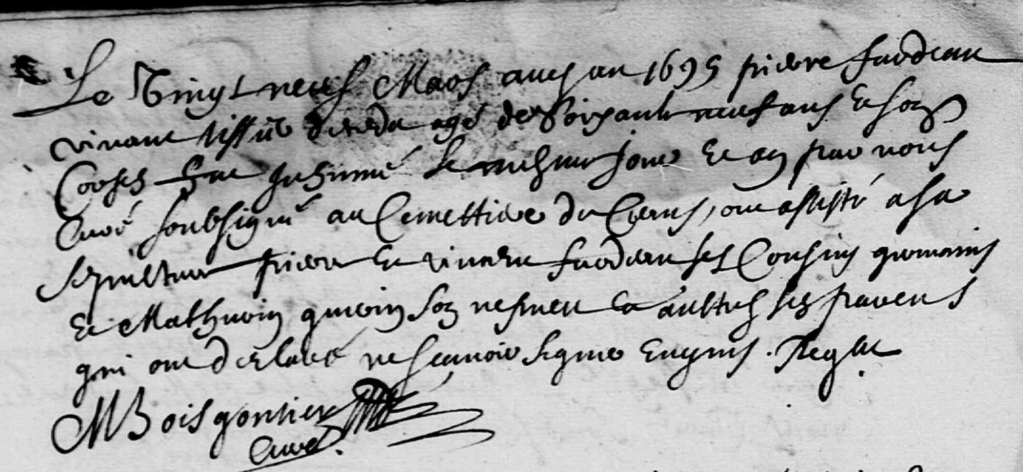 Le Vingt neuf Mars aud an 1695 pierre fardeau
vivant tissie deceda agé de soixante neuf ans & son
Corps fut Inhumé Le mesme jour & an par nous
Curé soubsigné au Cemettiere du Ciens, ont assisté a sa
sepulture pierre & vincent fardeau ses Cousins germains
& Mathurin guerin son nepveu & autres ses parens
qui ont declaré ne scavoir signer Enquis.
MBoisgontier
Curé.